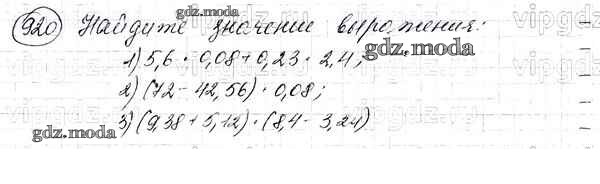 920 Найдите значение выражения:
1) 5,6 · 0,08 + 0,23 · 2,4;
2) (72 - 42,56) · 0,08;
3) (9,38 + 5,12) · (8,4 - 3,24)
gdz.moda
gdz.moda
gdz.moda
vipgdz
vipgdz
vipgdz